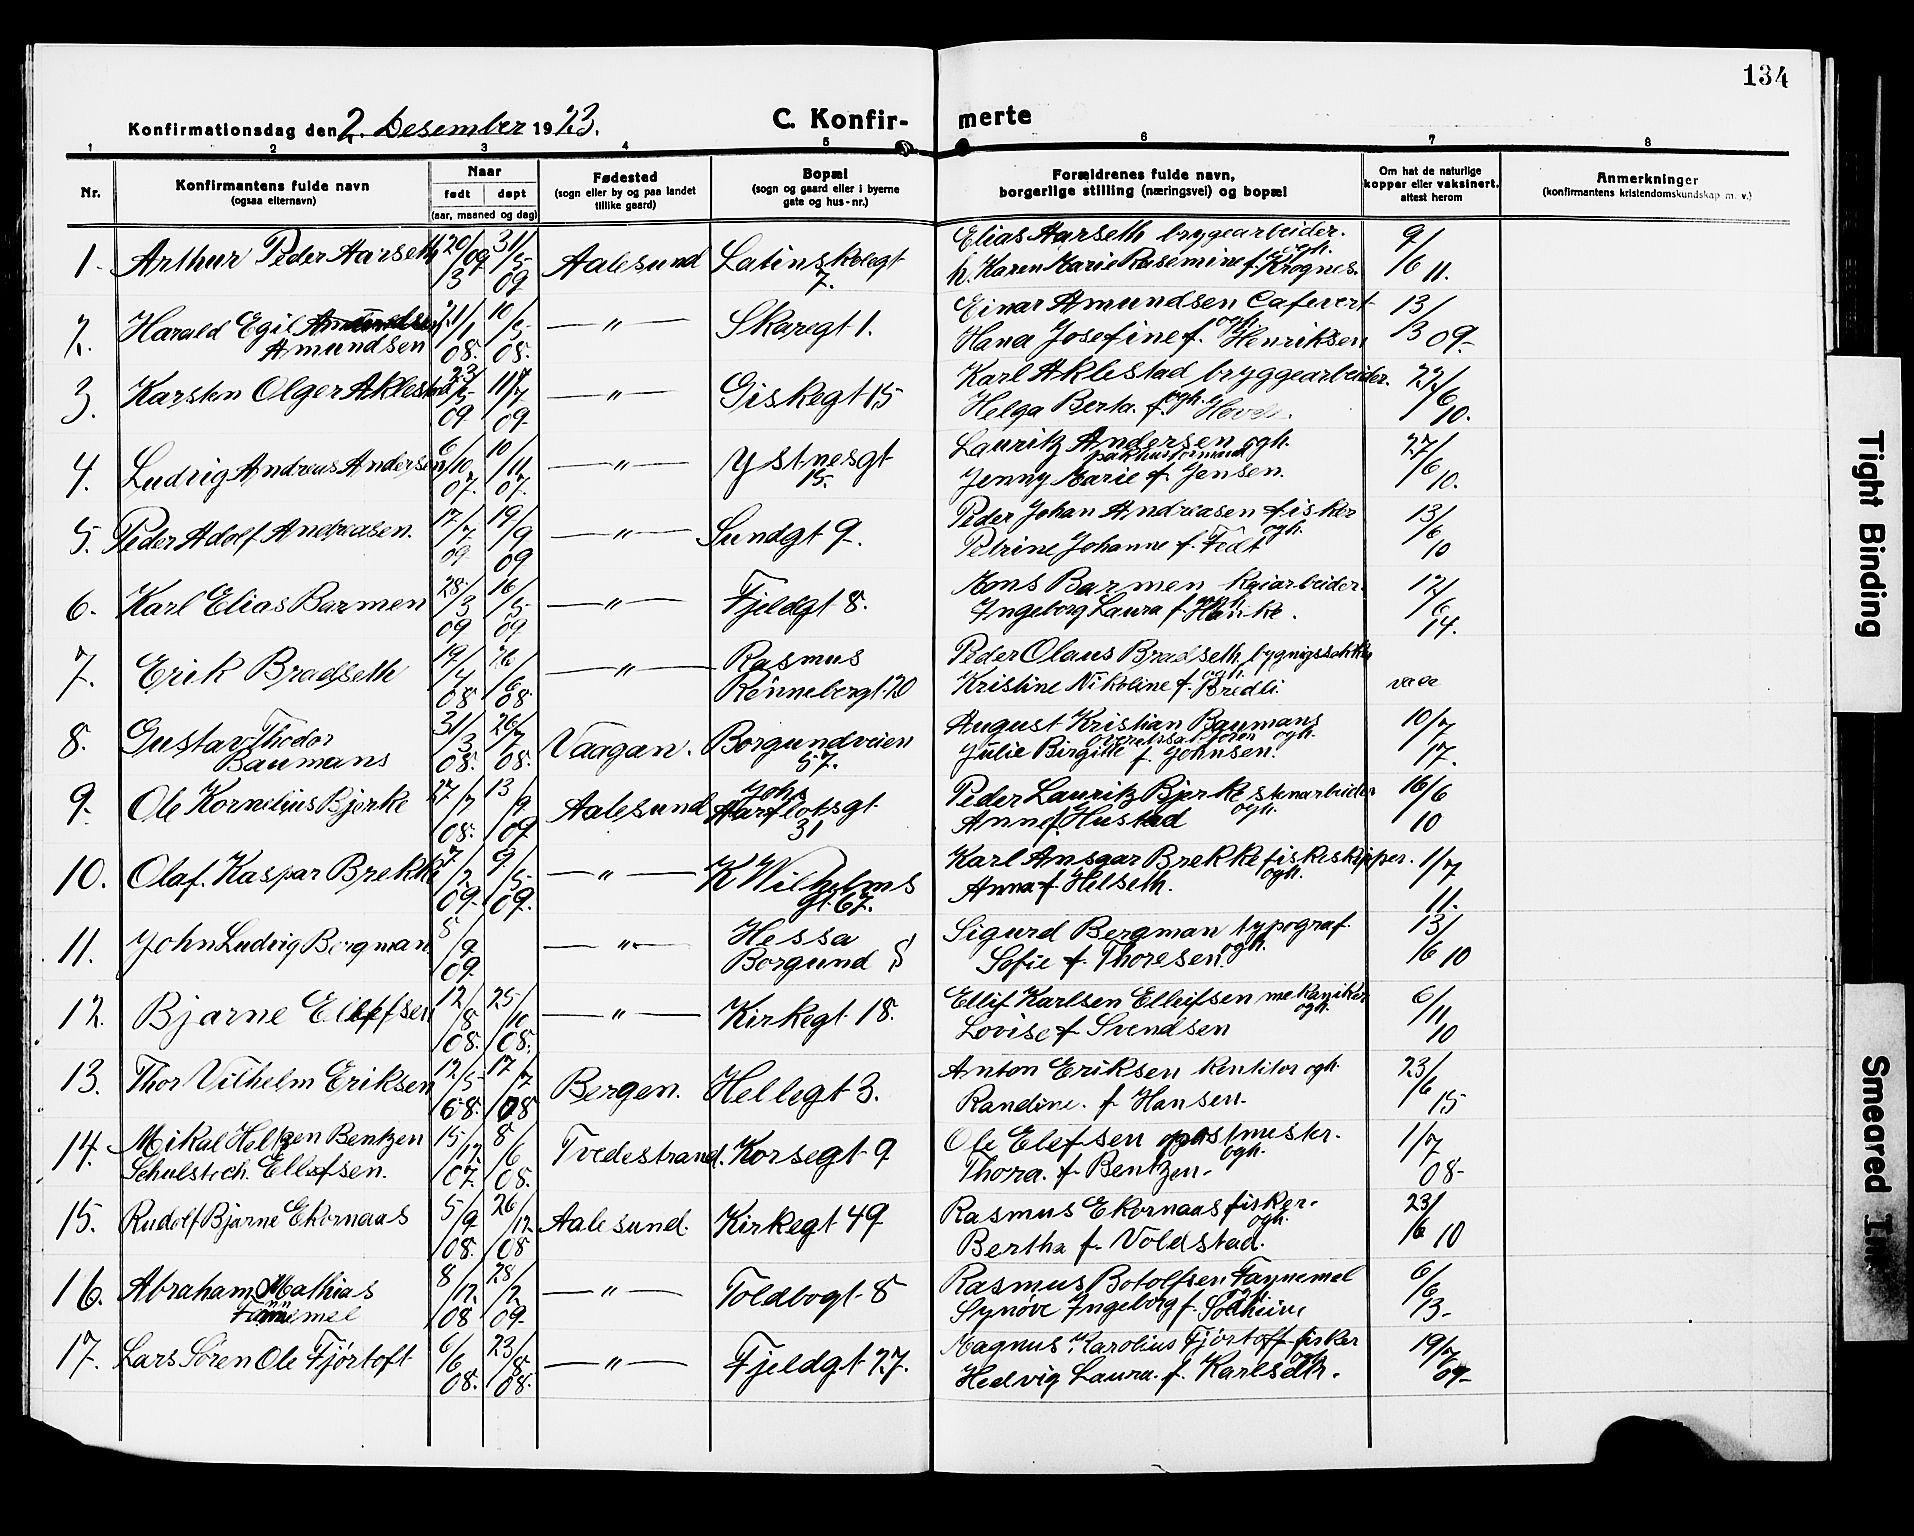 134
Konfirmationsdag den 2. Desember 1923.
C. Konfirmerte
1 2 3 4 5 6 7 8
Nr.
Konfirmantens fulde navn
(ogsaa elternavn)
Naar
født døpt
(aar, maaned og dag)
Fødested
(sogn eller by og paa landet
tillike gaard)
Bopæl
(sogn og gaard eller i byerne
gate og hus-nr.)
Forældrenes fulde navn,
borgerlige stilling (næringsvei) og bopæl
Om hat de naturlige
kopper eller vaksinert,
attest herom
Anmerkninger
(konfirmantens kristendomskundskap m. v.)
1. Arthur Peder Aarseth 20/3 09 31/5 09 Aalesund Latinskolegt 7. Elias Aarseth brygearbeider. 9/6 11.
h. Karen Marie Rasemine f. Krognes. ogh.
2. Harald Egil Amundsen 21/1 08. 10/5 08. —"— Skaregt 1. Einar Amundsen Cafevert 13/3 09.
Amundsen Hana Josefine f. Henriksen ogh.
3. Karsten Olger Aklestad 23/5 09 11/7 09. —"— Giskegt 15 Karl Aklestad bryggearbeider. 22/6 10.
Helga Berta. f. ogh.
4. Ludvig Andreas Andersen 6/10 07. 10/11 07. —"— Ystnesgt 15. Lauritz Andersen ogh. 27/6 10.
pakhusformand
Jenny Marie f. Jensen.
5. Peder Adolf Andreasen. 17/7 09 19/9 09 —"— Sundgt 9. Peder Johan Andreasen fisker 13/6 10
Petrine Johanne f. ogh.
6. Karl Elias Barmen 28/3 09 16/5 09 —"— Fjeldgt 8. Mons Barmen kaiarbeider. 12/6 14.
Ingeborg Laura f.
7. Erik Bradseth 19/4 08 —"— Rasmus Peder Olaus Bradseth
Rønnebergt. 20 Kristine Nikoline f. Bredli.
8. Gustav Thodor 31/3 08. 26/7 08. Vaagan. Borgundveien 57. August Kristian Baumans 10/7 17.
Baumans Julie Birgitte f. Johnsen. ogh.
9. Ole Kornelius Bjerke 27/7 08. 13/9 09 Aalesund Johs Aarflotsgt 31 Peder Lauritz Bjerke stenarbeider 16/6 10
Anne f. Hustad ogh.
10. Olaf. Kaspar Brekke 7/2 09. 9/5 09. —"— K Wilhelms gt. 67. Karl Ansgar Brekke fiskeskipper. 1/7 11.
Anna f. Helseth. ogh.
11. John Ludvig Bergman 8/9 09. —"— Hessa Sigurd Bergman typograf. 13/6 10
Borgund Sofie f. Thoresen. ogh.
12. Bjarne Ellefsen 12/8 08. 25/10 08. —"— Kirkegt 18. Ellif Karlsen Elleifsen mekaniker 6/11 10
Lovise f Svendsen ogh.
13. Thor Vilhelm Eriksen 12/5 08. 17/7 08 Bergen. Hellegt 3. Anton Eriksen kontitor ogh. 23/6 15
Randine. f Hansen.
14. Mikal Heltzen Bentzen 15/12 07. 8/6 08. Tvedestrand. Korsegt 9 Ole Elefsen postmester. 1/7 08.
Schulstoch. Ellefsen. Thora. f. Bentzen. ogh.
15. Rudolf Bjarne Ekornaas 5/9 08. 26/12 08 Aalesund. Kirkegt 49 Rasmus Ekornaas fisker. 23/6 10
Bertha f. Voldstad. ogh.
16. Abraham Mathias 8/12 08 28/2 09. —"— Toldbogt 8 Rasmus Botolfsen Fannemel 6/6 13.
Fannemel Synøve Ingeborg f. Solheim
17. Lars Søren Ole Fjørtoft 6/6 08. 23/8 08. —"— Fjeldgt 27. Magnus Karolius Fjørtoft fisker 19/7 09.
Hedvig Laura. f. Karlseth. ogh.
Tight Binding
Smeared Ink